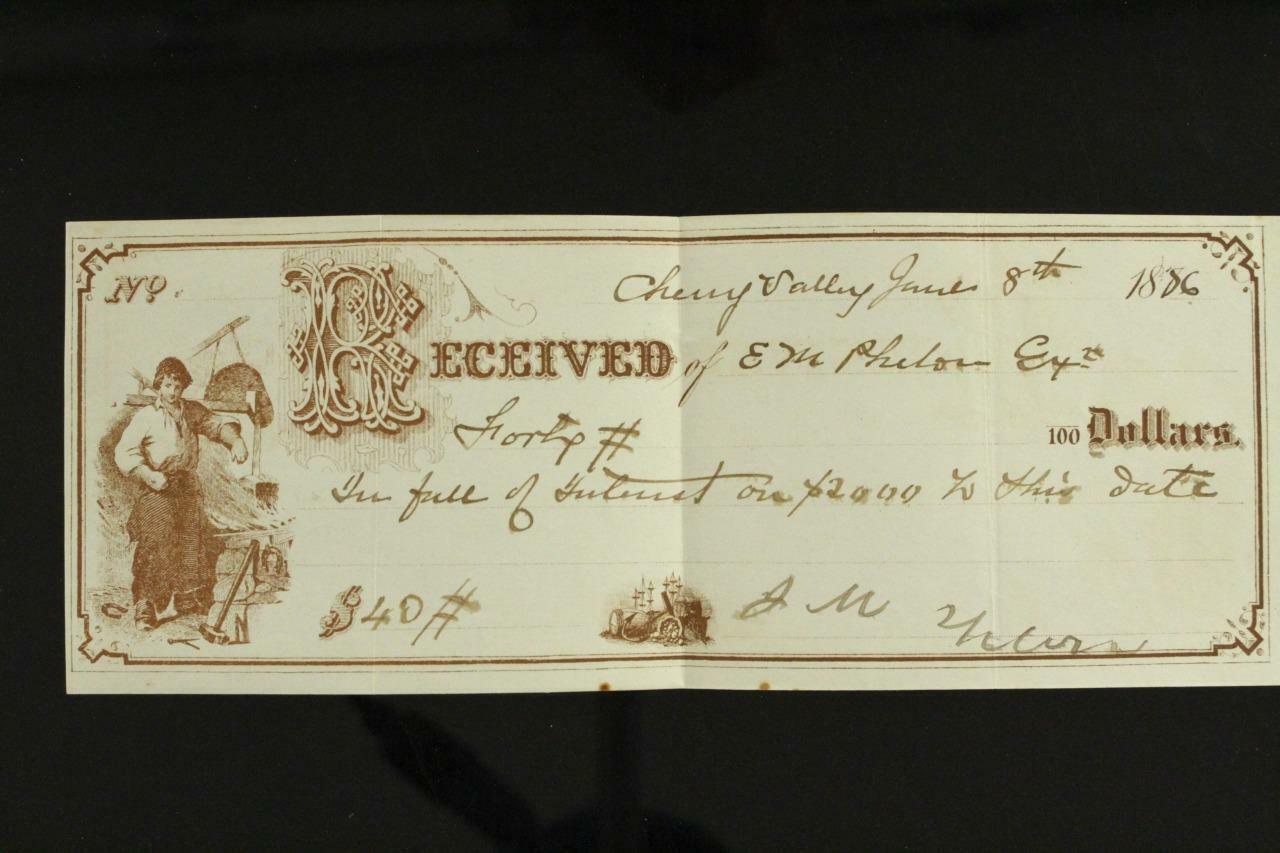 No. Cherry Valley June 8th 1886
RECEIVED of E M Phelon Exr
Forty # 100 Dollars.
In full of Interest on $2000 to this date
$40 # J M